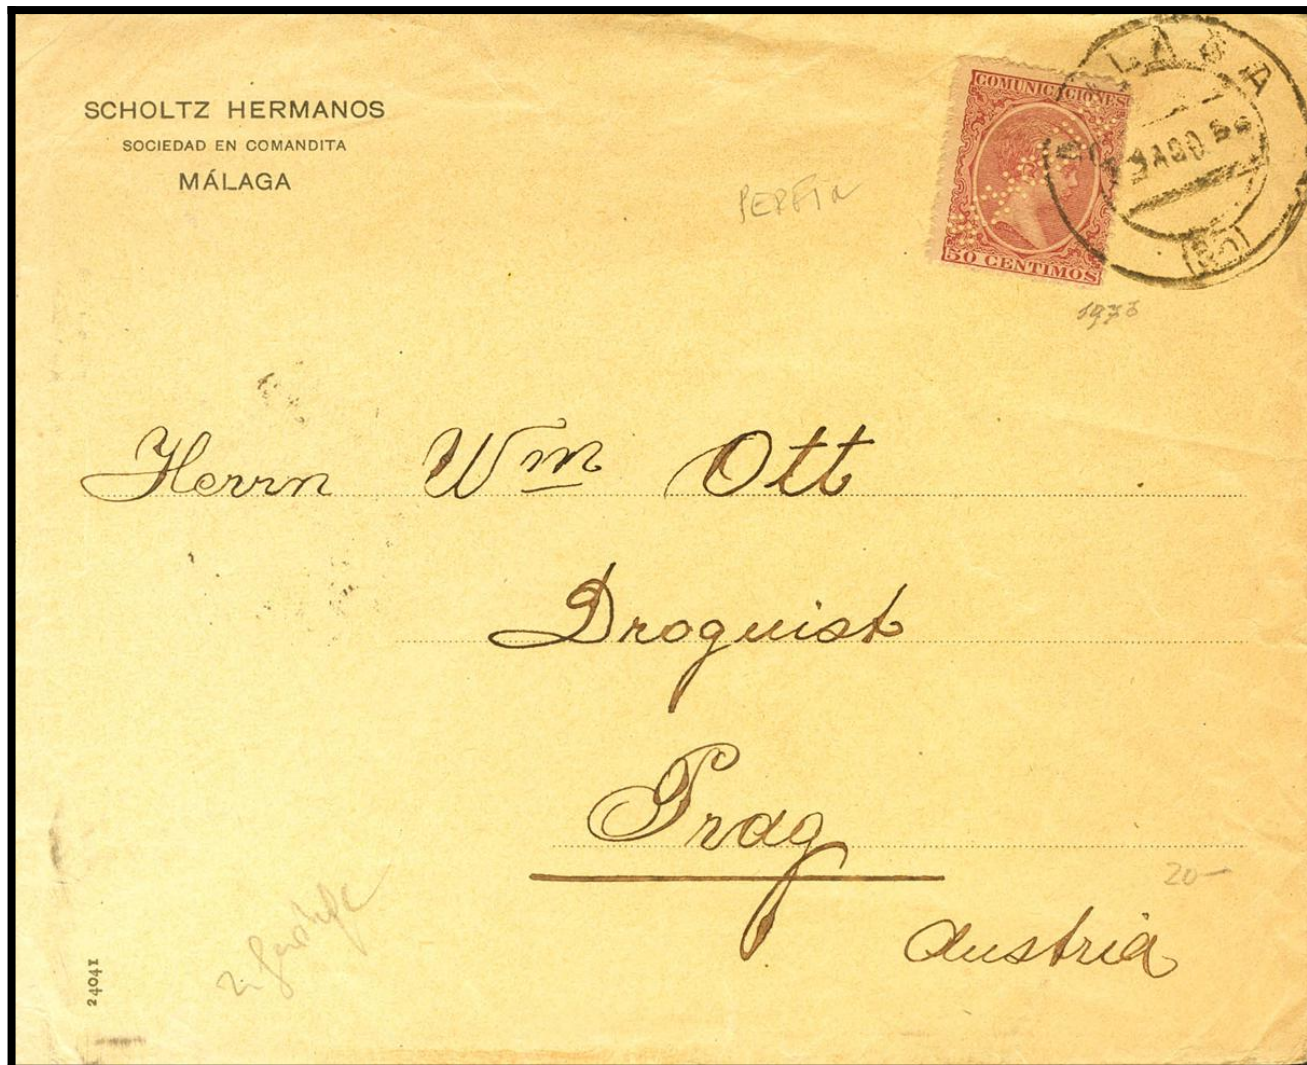 SCHOLTZ HERMANOS
SOCIEDAD EN COMANDITA
MÁLAGA
COMUNICACIONES
50 CENTIMOS
PERFIN
Herrn Wm Ott
Droguist
Prag
20-
Austria
24041